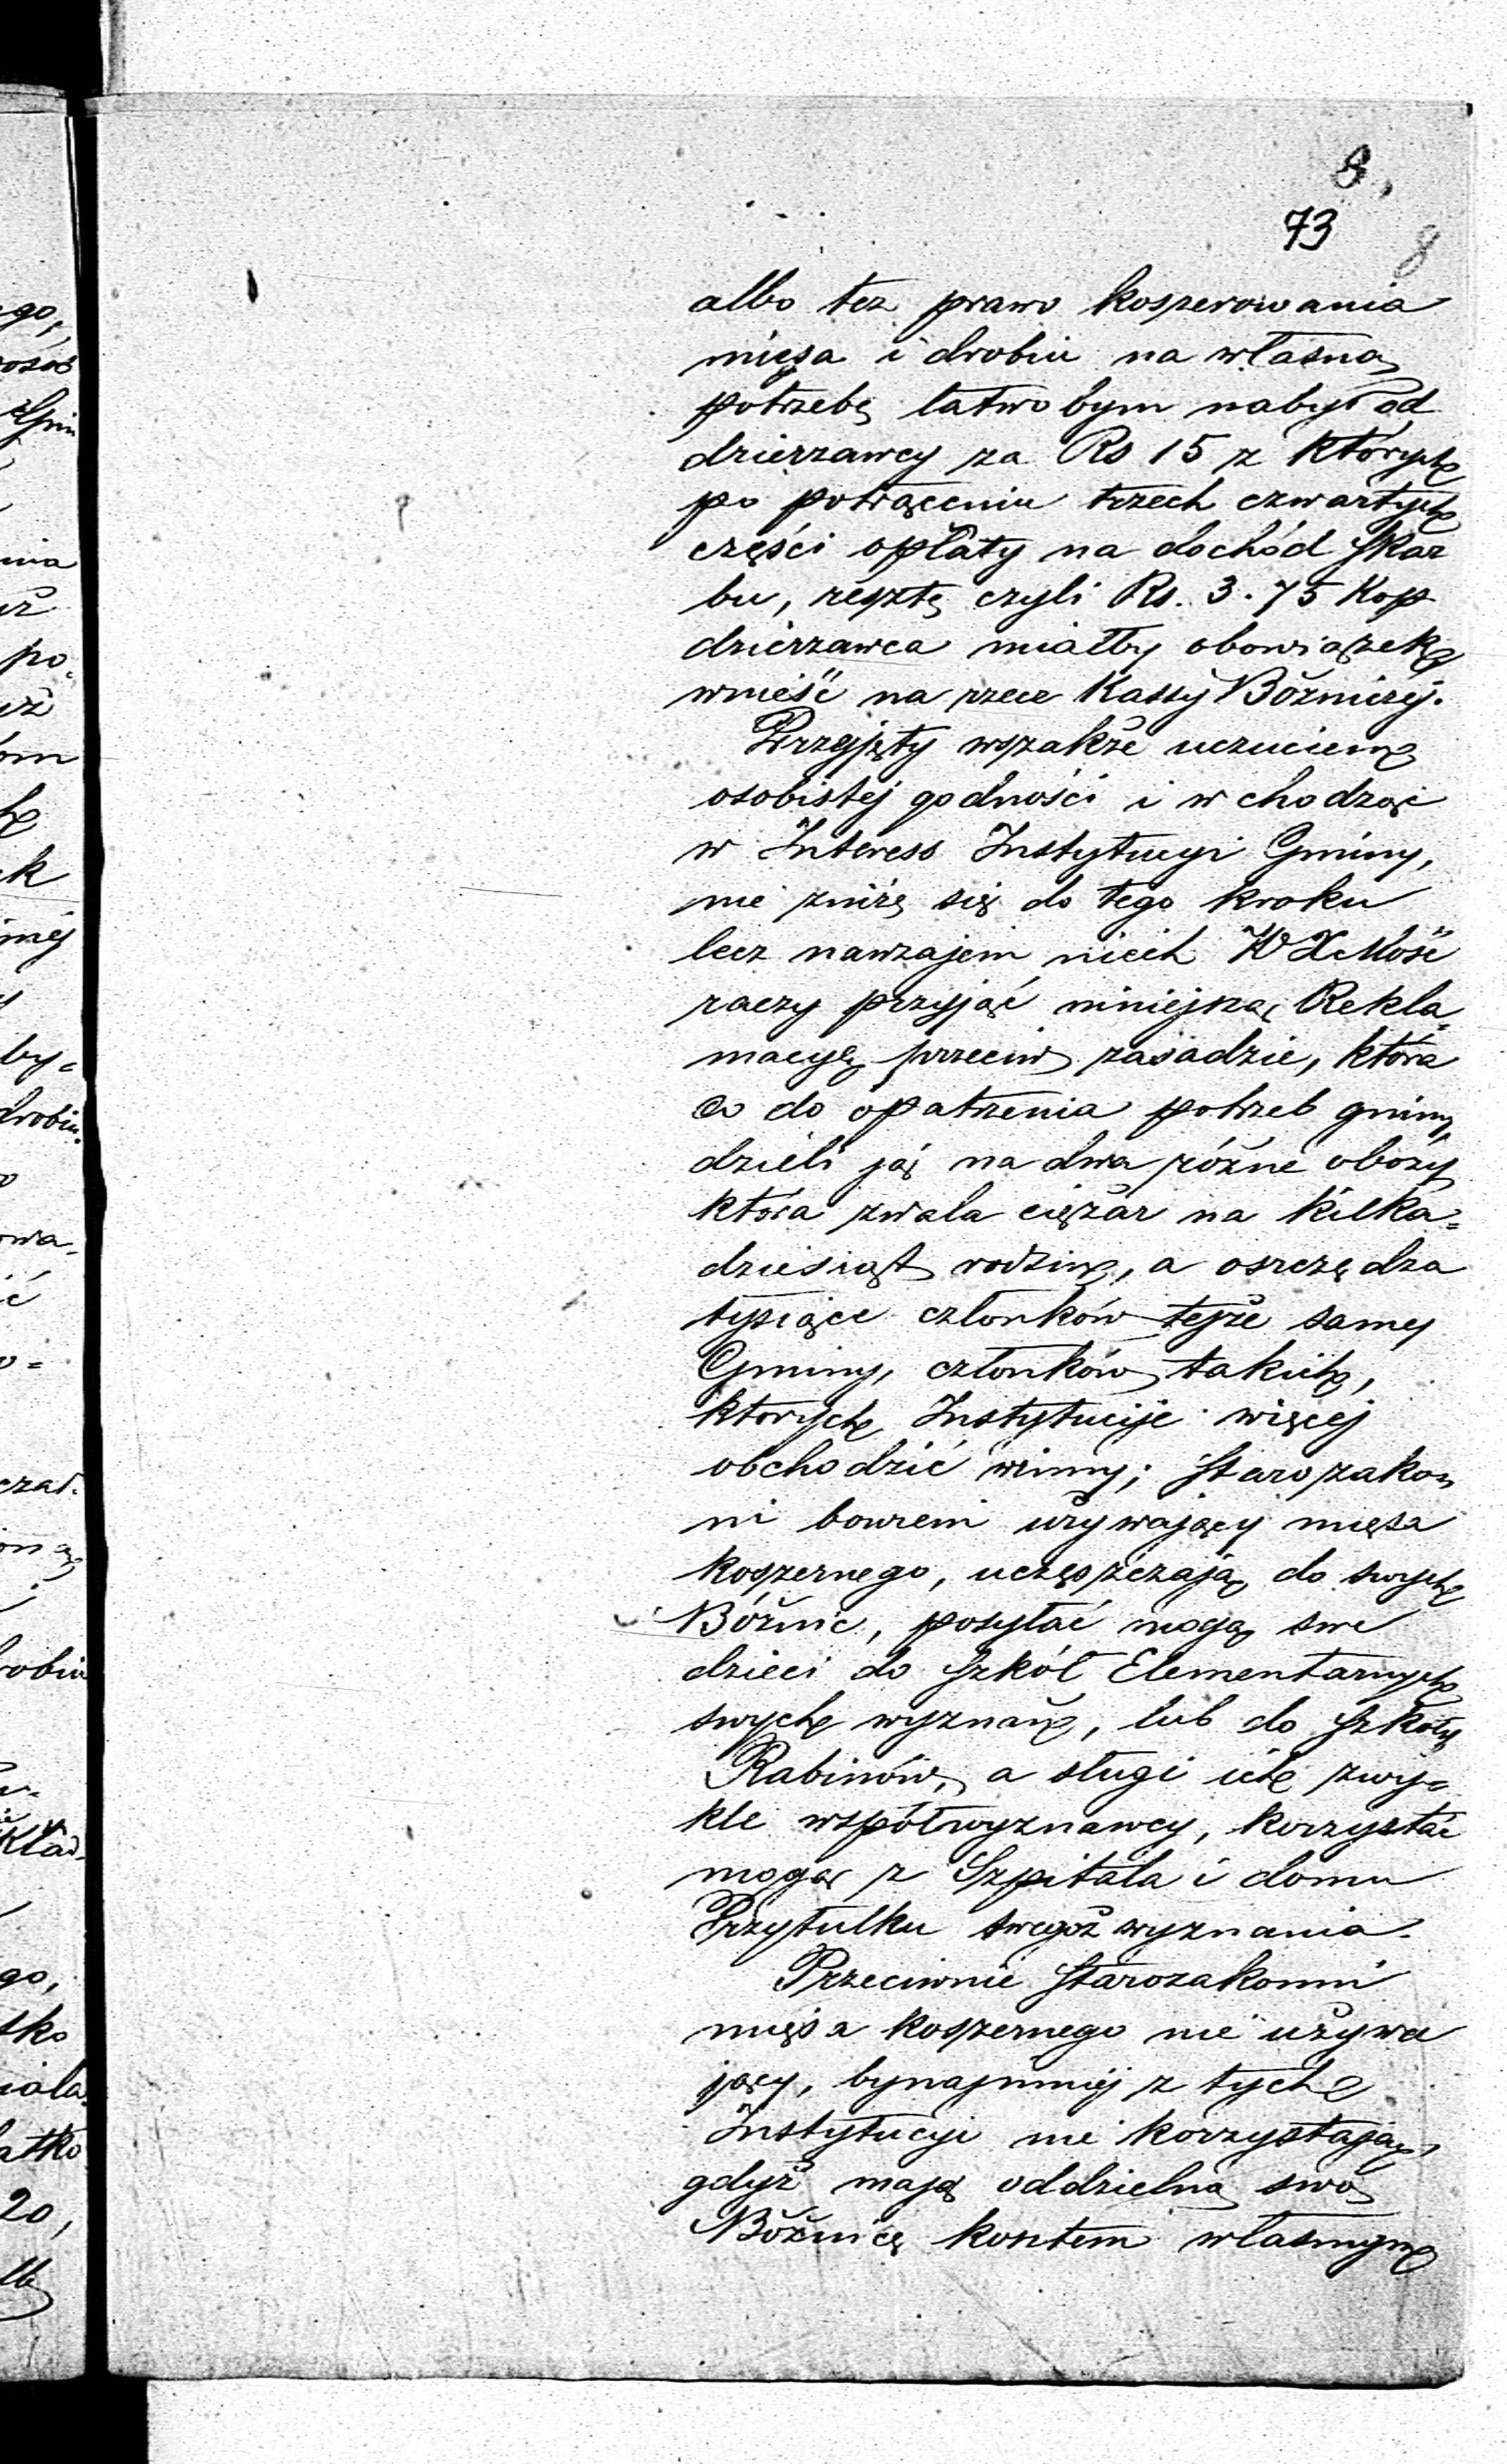 8,
73
8
albo tez prawo koszerowania
mięsa i drobiu na własną
potrzebę łatwo bym nabył od
dzierzawcy za Rs 15 z których
po potrąceniu trzech czwartych
części opłaty na dochód Skar
bu, resztę czyli Rs. 3.75 Kop
dzierzawca miałby obowiązek
wnieść na rzecz Kassy Bóżniczej.
Przejęty wszakże uczuciem
osobistej godności i wchodząc
w Interess Instytucyi Gminy,
nie zniżę się do tego kroku
lecz nawzajem niech
raczy przyjąć niniejszą Rekla-
macyę przeciw zasadzie, która
co do opatrzenia potrzeb gminy
dzieli ją na dwa różne obozy
która zwala ciężar na kilka=
dziesiąt rodzin, a oszczędza
tysiące członków tejże samej
Gminy, członków takich,
ktorych Instytucije więcej
obchodzić winny; Starozakon
ni bowiem używający mięsa
koszernego, uczęszczają do swych
Bóżnic, posyłać mogą swe
dzieci do Szkół Elementarnych
swych wyznań, lub do Szkoły
Rabinów, a sługi ich zwy=
kle współwyznawcy, korzystać
mogą z Szpitala i domu
Przytułku swegoż wyznania.
Przeciwnie Starozakonni
mięsa koszernego nie używa
jący, bynajmniej z tych
Instytucyi nie korzystają,
gdyż mają oddzielną swą
Bóżnicę kosztem własnym
ego,
osób
nia
po-
om
k
by=
drobiu.
owa-
czał.
robiu
kład-
go,
tko
iała
atko
20,